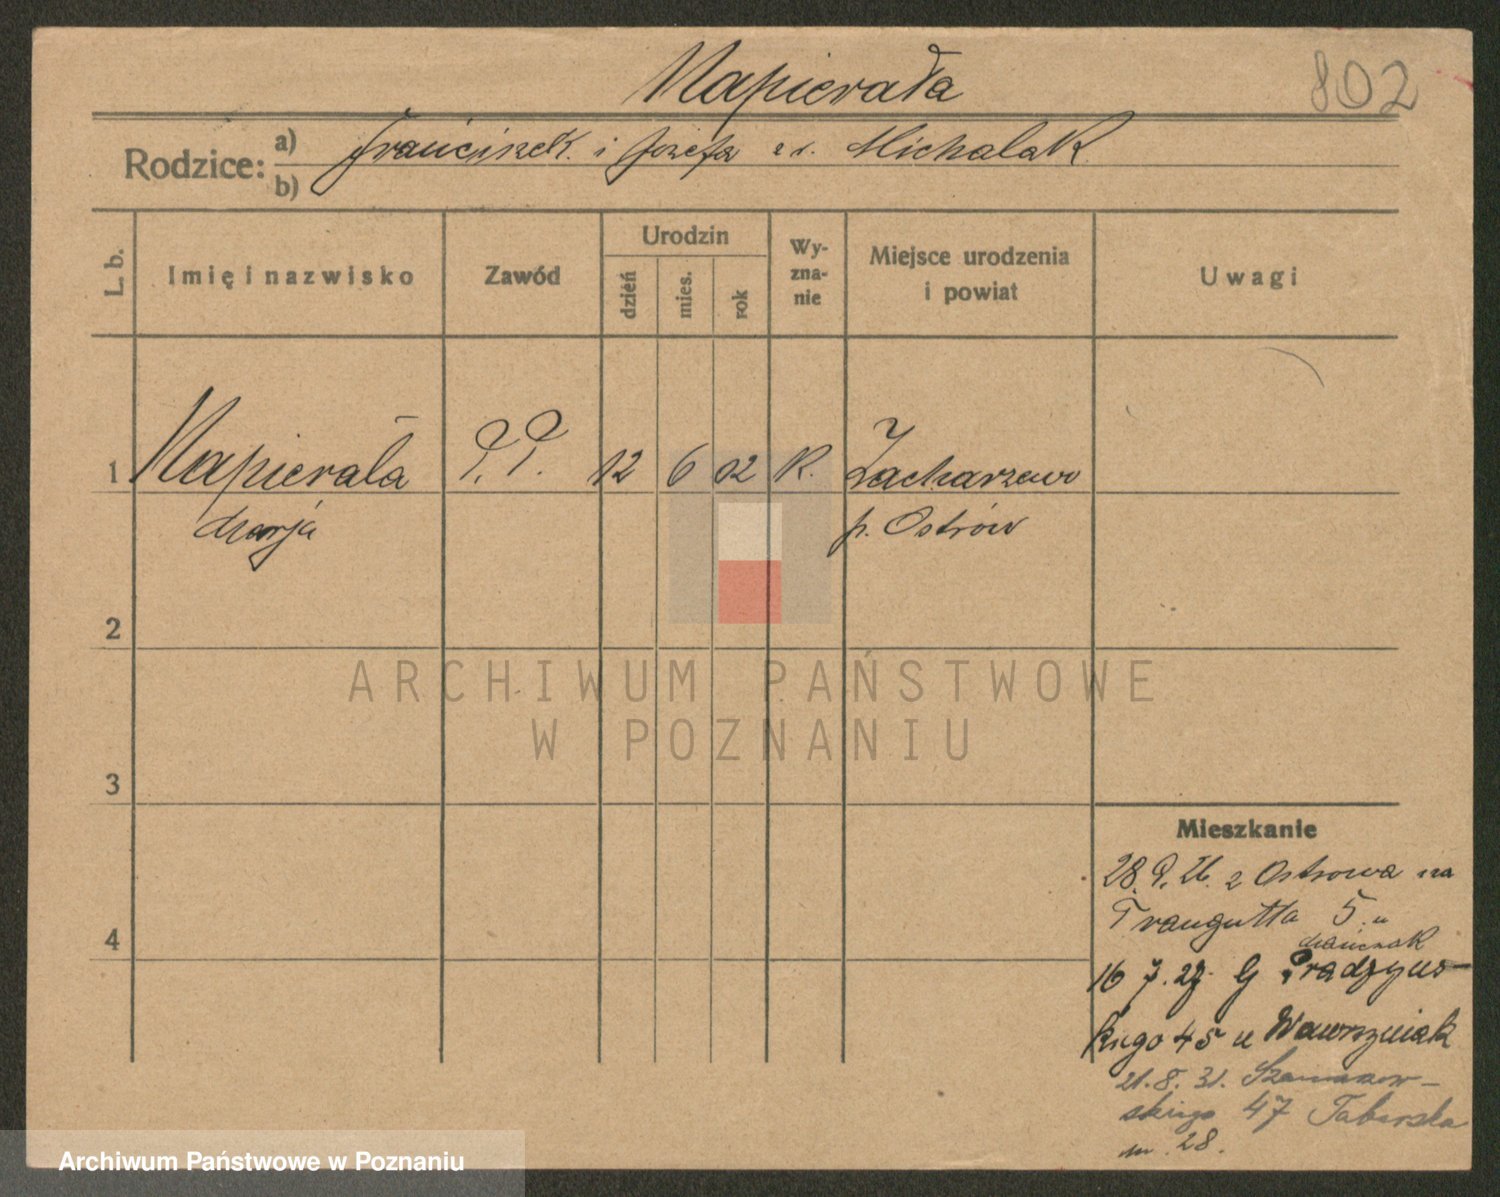 Napierała
802
Rodzice: a) Franciszek i Józefa z d. Michalak
b)
L. b.
Imię i nazwisko
Zawód
Urodzin
dzień
mies.
rok
Wy-
zna-
nie
Miejsce urodzenia
i powiat
Uwagi
1 Napierała 12 6 02 K. Zacharzewo
Marja p. Ostrów
2
ARCHIWUM PAŃSTWOWE
W POZNANIU
3
Mieszkanie
28.9.26. z Ostrowa na
Traugutta 5. u
4
16 7. 27. G Prądzyńs-
kiego 45 u Wawrzyniak
21.8.31. Szamarzew-
skiego 47 Taborska
m. 28.
Archiwum Państwowe w Poznaniu